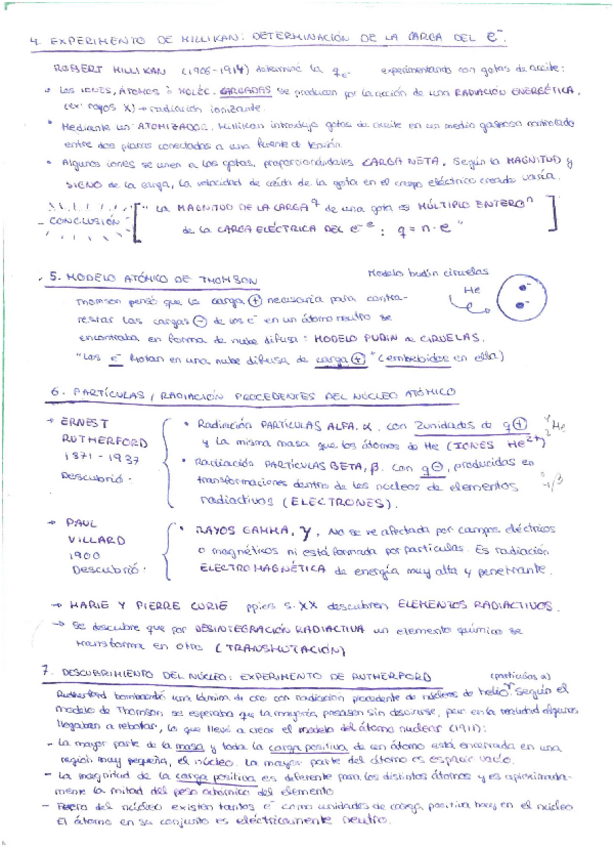 4. EXPERIMENTO DE MILLIKAN: DETERMINACIÓN DE LA CARGA DEL e⁻.
ROBERT MILLIKAN (1906-1914) determinó la qe⁻ experimentando con gotas de aceite:
• Los IONES, ÁTOMOS o MOLÉC. CARGADAS se producen por la acción de una RADIACIÓN ENERGÉTICA.
(ex: rayos X) → radiación ionizante.
• Mediante un ATOMIZADOR, Millikan introdujo gotas de aceite en un medio gaseoso
entre dos placas conectadas a una fuente de tensión.
• Algunos iones se unen a las gotas, proporcionándoles CARGA NETA. Según la MAGNITUD y
SIGNO de la carga, la velocidad de caída de la gota en el campo eléctrico creado varía.
CONCLUSIÓN
"LA MAGNITUD DE LA CARGA q de una gota es MÚLTIPLO ENTERO n
de la CARGA ELÉCTRICA DEL e⁻ e: q = n·e"
5. MODELO ATÓMICO DE THOMSON
Modelo budín ciruelas
Thomson pensó que la carga ⊕ necesaria para contra-
He
restar las cargas ⊖ de los e⁻ en un átomo neutro se
encontraba en forma de nube difusa: MODELO PUDIN de CIRUELAS.
"Los e⁻ flotan en una nube difusa de carga ⊕" (embebidos en ella)
6. PARTÍCULAS / RADIACIÓN PROCEDENTES DEL NÚCLEO ATÓMICO
→ ERNEST
RUTHERFORD
1871-1937
Descubrió:
• Radiación PARTÍCULAS ALFA, α, con 2 unidades de q⊕ He
y la misma masa que los átomos de He (IONES He²⁺)
• Radiación PARTÍCULAS BETA, β, con q⊖, producidas en
transformaciones dentro de los núcleos de elementos -1β
radiactivos (ELECTRONES).
→ PAUL
VILLARD
1900
Descubrió:
• RAYOS GAMMA, γ, no se ve afectada por campos eléctricos
o magnéticos ni está formada por partículas. Es radiación
ELECTROMAGNÉTICA de energía muy alta y penetrante.
→ MARIE Y PIERRE CURIE ppios S. XX descubren ELEMENTOS RADIACTIVOS.
→ Se descubre que por DESINTEGRACIÓN RADIACTIVA un elemento químico se
transforma en otro (TRANSMUTACIÓN)
7. DESCUBRIMIENTO DEL NÚCLEO: EXPERIMENTO DE RUTHERFORD (partículas α)
Rutherford bombardeó una lámina de oro con radiación procedente de núcleos de helio. Según el
modelo de Thomson se esperaba que la mayoría pasasen sin desviarse, pero en la realidad algunos
llegaban a rebotar, lo que llevó a crear el modelo del átomo nuclear (1911):
- La mayor parte de la masa y toda la carga positiva de un átomo está encerrada en una
región muy pequeña, el núcleo. La mayor parte del átomo es espacio vacío.
- La magnitud de la carga positiva es diferente para los distintos átomos y es aproximada-
mente la mitad del peso atómico del elemento
- Fuera del núcleo existen tantos e⁻ como unidades de carga positiva hay en el núcleo
El átomo en su conjunto es eléctricamente neutro.